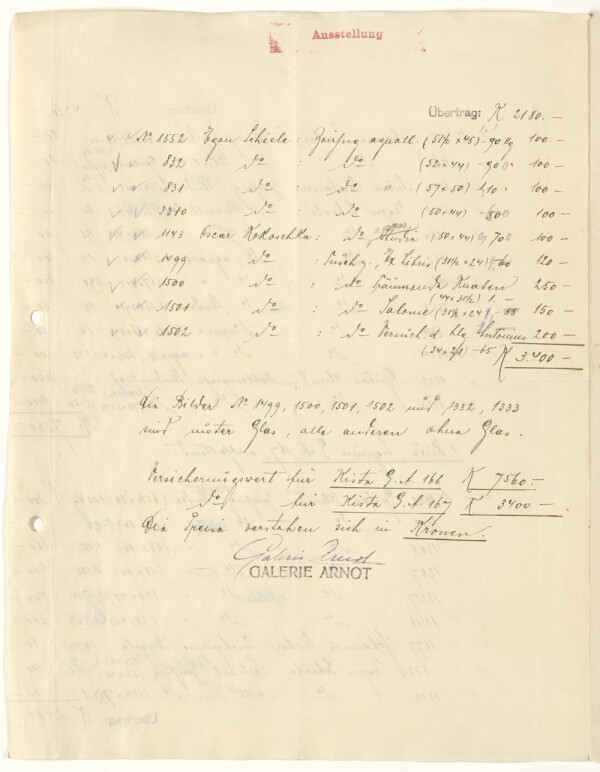 Ausstellung
Übertrag: K 2180.—
No 1552 Egon Schiele: Zeichng aquall. (51½ x 45) – 90 kg 100 —
832 do : do (52 x 44) – 90 100 —
831 do : do (57 x 50) 100 —
3310 do : do (50 x 44) 100 —
1143 Oscar Kokoschka: do Studie (50 x 44) 700 100 —
1499 do : Tuschz., Ex Libris (31½ x 24) 120 —
1500 do : do Hämmernde Knaben 250 —
(44 x 31½) 1.—
1501 do : do Salome (31½ x 24) 150 —
1502 do : do Versuch. d. hlg. Antonius 200 —
(34 x ) – 65 K 3.400 —
Die Bilder No 1499, 1500, 1501, 1502 und 1332, 1333
sind unter Glas, alle anderen ohne Glas.
Versicherungswert für Kiste G. A. 166 K 7560.—
do für Kiste G. A. 167 K 3400 —
Die Preise verstehen sich in Kronen.
Galerie Arnot
GALERIE ARNOT